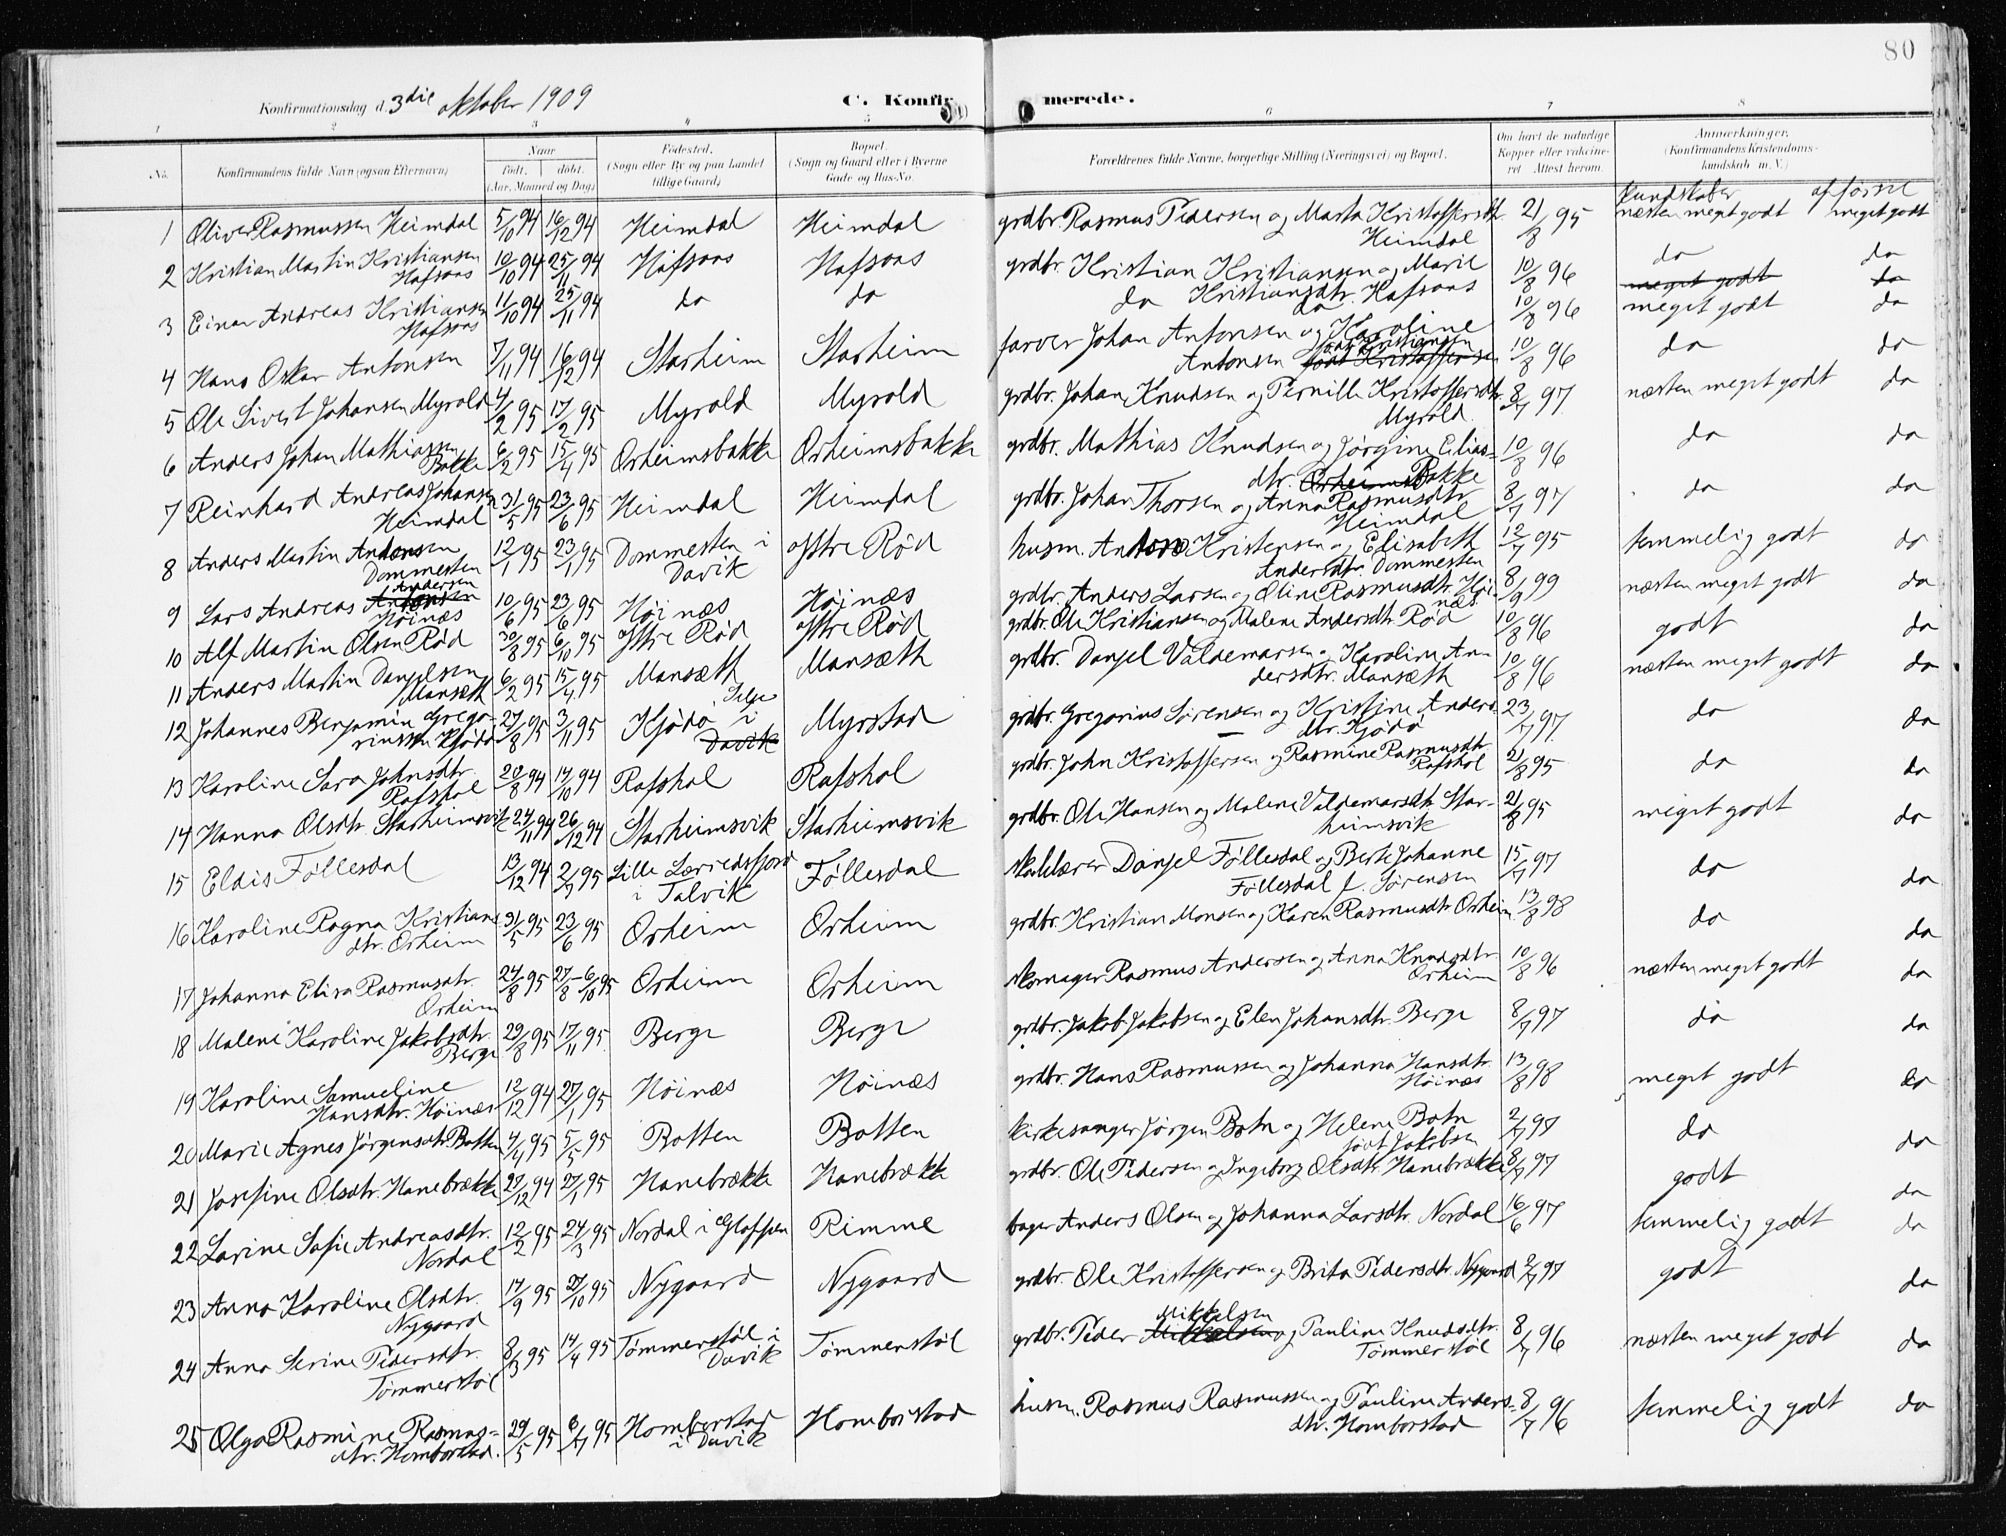 80
Konfirmationsdag d. 3die oktober 1909
C. Konfirmerede.
1 2 3 4 5 6 7 8
No. Konfirmandens fulde Navn (ogsaa Efternavn) Naar født. døbt. (Aar, Maaned og Dag) Fødested. (Sogn eller By og paa Landet tillige Gaard) Bopæl. (Sogn og Gaard eller i Byerne Gade og Hus-No. Forældrenes fulde Navne, borgerlige Stilling (Næringsvei) og Bopæl. Om havt de naturlige Kopper eller vaccineret Attest herom. Anmærkninger. (Konfirmandens Kristendomskundskab m. V.)
Kundskaber afførsel
1 Oliver Rasmussen Heimdal 5/10 94 16/12 94 Heimdal Heimdal grdbr. Rasmus Pedersen og Marta Kristoffersdtr. Heimdal 21/8 95 næsten meget godt meget godt
2 Kristian Martin Kristiansen Hafsaas 10/10 94 25/11 94 Hafsaas Hafsaas grdbr. Kristian Kristiansen og Marie Kristiansdtr. Hafsaas 10/8 96 do do
meget godt do
3 Einar Andreas Kristiansen Hafsaas 11/10 94 25/11 94 do do do do 10/8 96 meget godt do
4 Hans Oskar Antonsen 7/11 94 16/12 94 Starheim Starheim farver Johan Antonsen og Karoline Antonsen født Kristoffersen født Kristiansen 10/8 96 do do
5 Ole Sivert Johansen Myrold 4/2 95 17/2 95 Myrold Myrold grdbr. Johan Knudsen og Pernille Kristoffersdtr. Myrold 8/7 97 næsten meget godt do
6 Anders Johan Mathiassen Bakke 6/2 95 15/4 95 Orheimsbakke Orheimsbakke grdbr. Mathias Knudsen og Jørgine Eliasdtr. Orheims Bakke 10/8 96 do do
7 Reinhard Andreas Johansen Heimdal 31/5 95 23/6 95 Heimdal Heimdal grdbr. Johan Thorsen og Anna Rasmusdtr. Heimdal 8/7 97 do do
8 Anders Martin Andersen Dommesten 12/1 95 23/1 95 Dommesten i Davik øffre Rød husm. Anders Kristensen og Elisabeth Andersdtr. Dommesten 12/7 95 temmelig godt do
9 Lars Andreas Antonsen Andersen Høinæs 10/6 95 23/6 95 Høinæs Høinæs grdbr. Anders Larsen og Oline Rasmusdtr. Høinæs 8/9 99 næsten meget godt do
10 Alf Martin Olsen Rød 30/8 95 6/10 95 øffre Rød øffre Rød grdbr. Ole Kristiansen og Malene Andersdtr. Rød 10/8 96 godt do
11 Anders Martin Danjelsen Mansæth 6/2 95 15/4 95 Mansæth Mansæth grdbr. Danjel Valdemarsen og Karoline Andersdtr. Mansæth 10/8 96 næsten meget godt do
12 Johannes Benjamin Gregoriussen Kjødø 27/8 95 3/11 95 Kjødø i Selje Davik Myrstad grdbr. Gregorius Sørensen og Kristine Andersdtr. Kjødø 23/7 97 do do
13 Karoline Sara Johnsdtr. Rafshol 20/8 94 14/10 94 Rafshol Rafshol grdbr. John Kristoffersen og Rasmine Rasmusdtr. Rafshol 21/8 95 do do
14 Hanna Olsdtr. Starheimsvik 24/11 94 26/12 94 Starheimsvik Starheimsvik grdbr. Ole Hansen og Malene Valdemarsdtr. Starheimsvik 21/8 95 meget godt do
15 Eldis Føllesdal 13/12 94 2/7 95 Lille Lærredsfjord i Talvik Føllesdal skolelærer Danjel Føllesdal og Berte Johanne Føllesdal f. Sørensen 15/7 97 do do
16 Karoline Ragna Kristiansdtr. Orheim 31/5 95 23/6 95 Orheim Orheim grdbr. Kristian Monsen og Karen Rasmusdtr. Orheim 13/8 98 do do
17 Johanna Elisa Rasmusdtr. Orheim 24/8 95 27/8 - 6/10 95 Orheim Orheim skomager Rasmus Andersen og Anna Knudsdtr. Orheim 10/8 96 næsten meget godt do
18 Malene Karoline Jakobsdtr. Berge 29/8 95 17/11 95 Berge Berge grdbr. Jakob Jakobsen og Elen Johansdtr. Berge 8/7 97 do do
19 Karoline Samueline Hansdtr. Høinæs 12/12 94 27/1 95 Høinæs Høinæs grdbr. Hans Rasmussen og Johanna Hansdtr. Høinæs 13/8 98 meget godt do
20 Marie Agnes Jørgensdtr. Botten 4/4 95 5/5 95 Botten Botten kirkesanger Jørgen Botn og Helene Botn født Jakobsen 2/7 97 do do
21 Josefine Olsdtr. Hanebrække 29/12 94 27/1 95 Hanebrække Hanebrække grdbr. Ole Pedersen og Ingeborg Olsdtr. Hanebrække 8/7 97 godt do
22 Larine Sofie Andreasdtr. Nordal 12/2 95 24/3 95 Nordal i Gloppen Rimme bager Anders Olsen og Johanna Larsdtr. Nordal 16/6 97 temmelig godt do
23 Anna Karoline Olsdtr. Nygaard 17/9 95 27/10 95 Nygaard Nygaard grdbr. Ole Kristoffersen og Brita Pedersdtr. Nygaard 2/7 97 godt do
24 Anna Serine Pedersdtr. Tømmerstøl 8/3 95 14/4 95 Tømmerstøl i Davik Tømmerstøl grdbr. Peder Mikkelsen og Pauline Knudsdtr. Tømmerstøl 8/7 96 næsten meget godt do
25 Olga Rasmine Rasmusdtr. Homborstad. 29/5 95 8/7 95 Homborstad i Davik Homborstad husm. Rasmus Rasmussen og Pauline Andersdtr. Homborstad 8/7 96 temmelig godt do